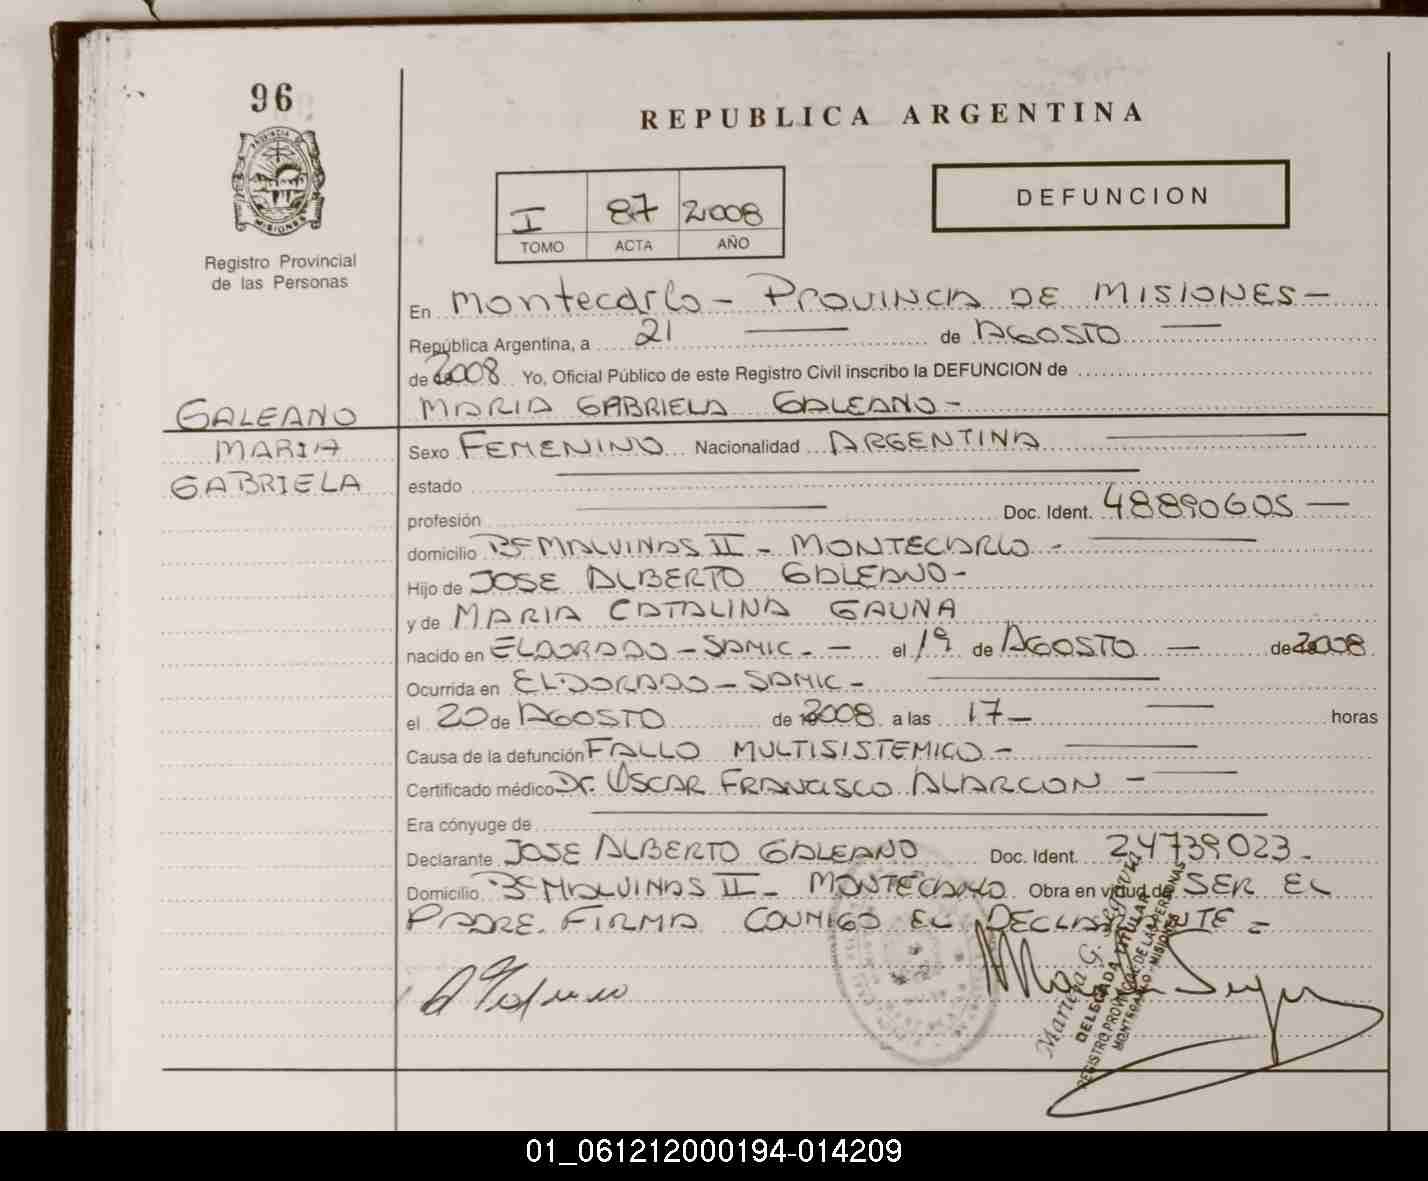 96
REPUBLICA ARGENTINA
PROVINCIA
MISIONES
DEFUNCION
I 87 2008
TOMO ACTA AÑO
Registro Provincial
de las Personas
En Montecarlo - PROVINCIA DE MISIONES -
República Argentina, a 21 de AGOSTO
de 2008 Yo, Oficial Público de este Registro Civil inscribo la DEFUNCION de
GALEANO MARIA GABRIELA GALEANO -
MARIA Sexo FEMENINO Nacionalidad ARGENTINA
GABRIELA estado
profesión Doc. Ident. 48890605 -
domicilio Bº MALVINAS II - MONTECARLO -
Hijo de JOSE ALBERTO GALEANO -
y de MARIA CATALINA GAUNA
nacido en ELDORADO - SAMIC - - el 19 de AGOSTO - de 2008
Ocurrida en ELDORADO - SAMIC -
el 20 de AGOSTO de 2008 a las 17 - horas
Causa de la defunción FALLO MULTISISTEMICO -
Certificado médico Dr. OSCAR FRANCISCO ALARCON -
Era cónyuge de
Declarante JOSE ALBERTO GALEANO Doc. Ident. 24739023 -
Domicilio Bº MALVINAS II - MONTECARLO Obra en virtud de SER EL
PADRE. FIRMA CONMIGO EL DECLARANTE =
DELEGADA TITULAR
REGISTRO PROVINCIAL DE LAS PERSONAS
MONTECARLO - MISIONES
01_061212000194-014209